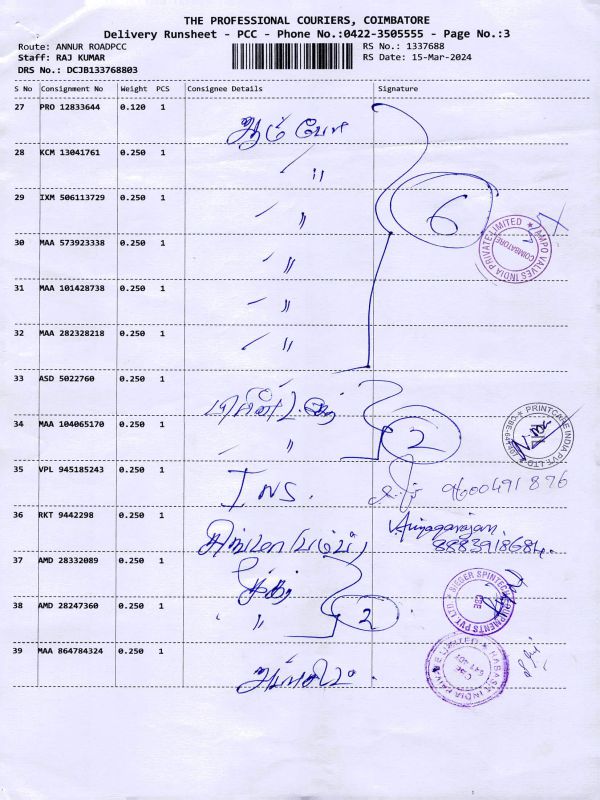 THE PROFESSIONAL COURIERS, COIMBATORE
Delivery Runsheet - PCC - Phone No.:0422-3505555 - Page No.:3
Route: ANNUR ROADPCC
Staff: RAJ KUMAR
DRS No.: DCJB133768803
RS No.: 1337688
RS Date: 15-Mar-2024
S No Consignment No Weight PCS Consignee Details Signature
27 PRO 12833644 0.120 1
28 KCM 13041761 0.250 1 〃
29 IXM 506113729 0.250 1 〃 6
AMPO VALVES INDIA PRIVATE LIMITED ★ COIMBATORE
30 MAA 573923338 0.250 1 〃
31 MAA 101428738 0.250 1 〃
32 MAA 282328218 0.250 1 〃
33 ASD 5022760 0.250 1
34 MAA 104065170 0.250 1 〃 2
PRINTCARE INDIA PVT. LTD
35 VPL 945185243 0.250 1 INS. 9600491876
36 RKT 9442298 0.250 1
8883918684
37 AMD 28332089 0.250 1
38 AMD 28247360 0.250 1 〃 2
CBE
39 MAA 864784324 0.250 1